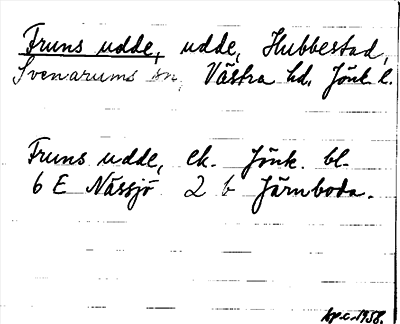 Fruns udde, udde, Hubbestad,
Svenarums sn, Västra hd. Jönk. l.
Fruns udde, ek. Jönk. bl.
6 E Nässjö 2 b Järnboda.
1958.